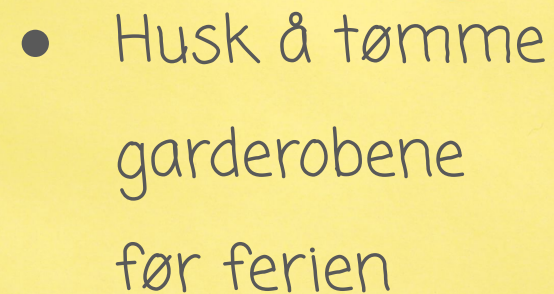 ● Husk å tømme
garderobene
før ferien